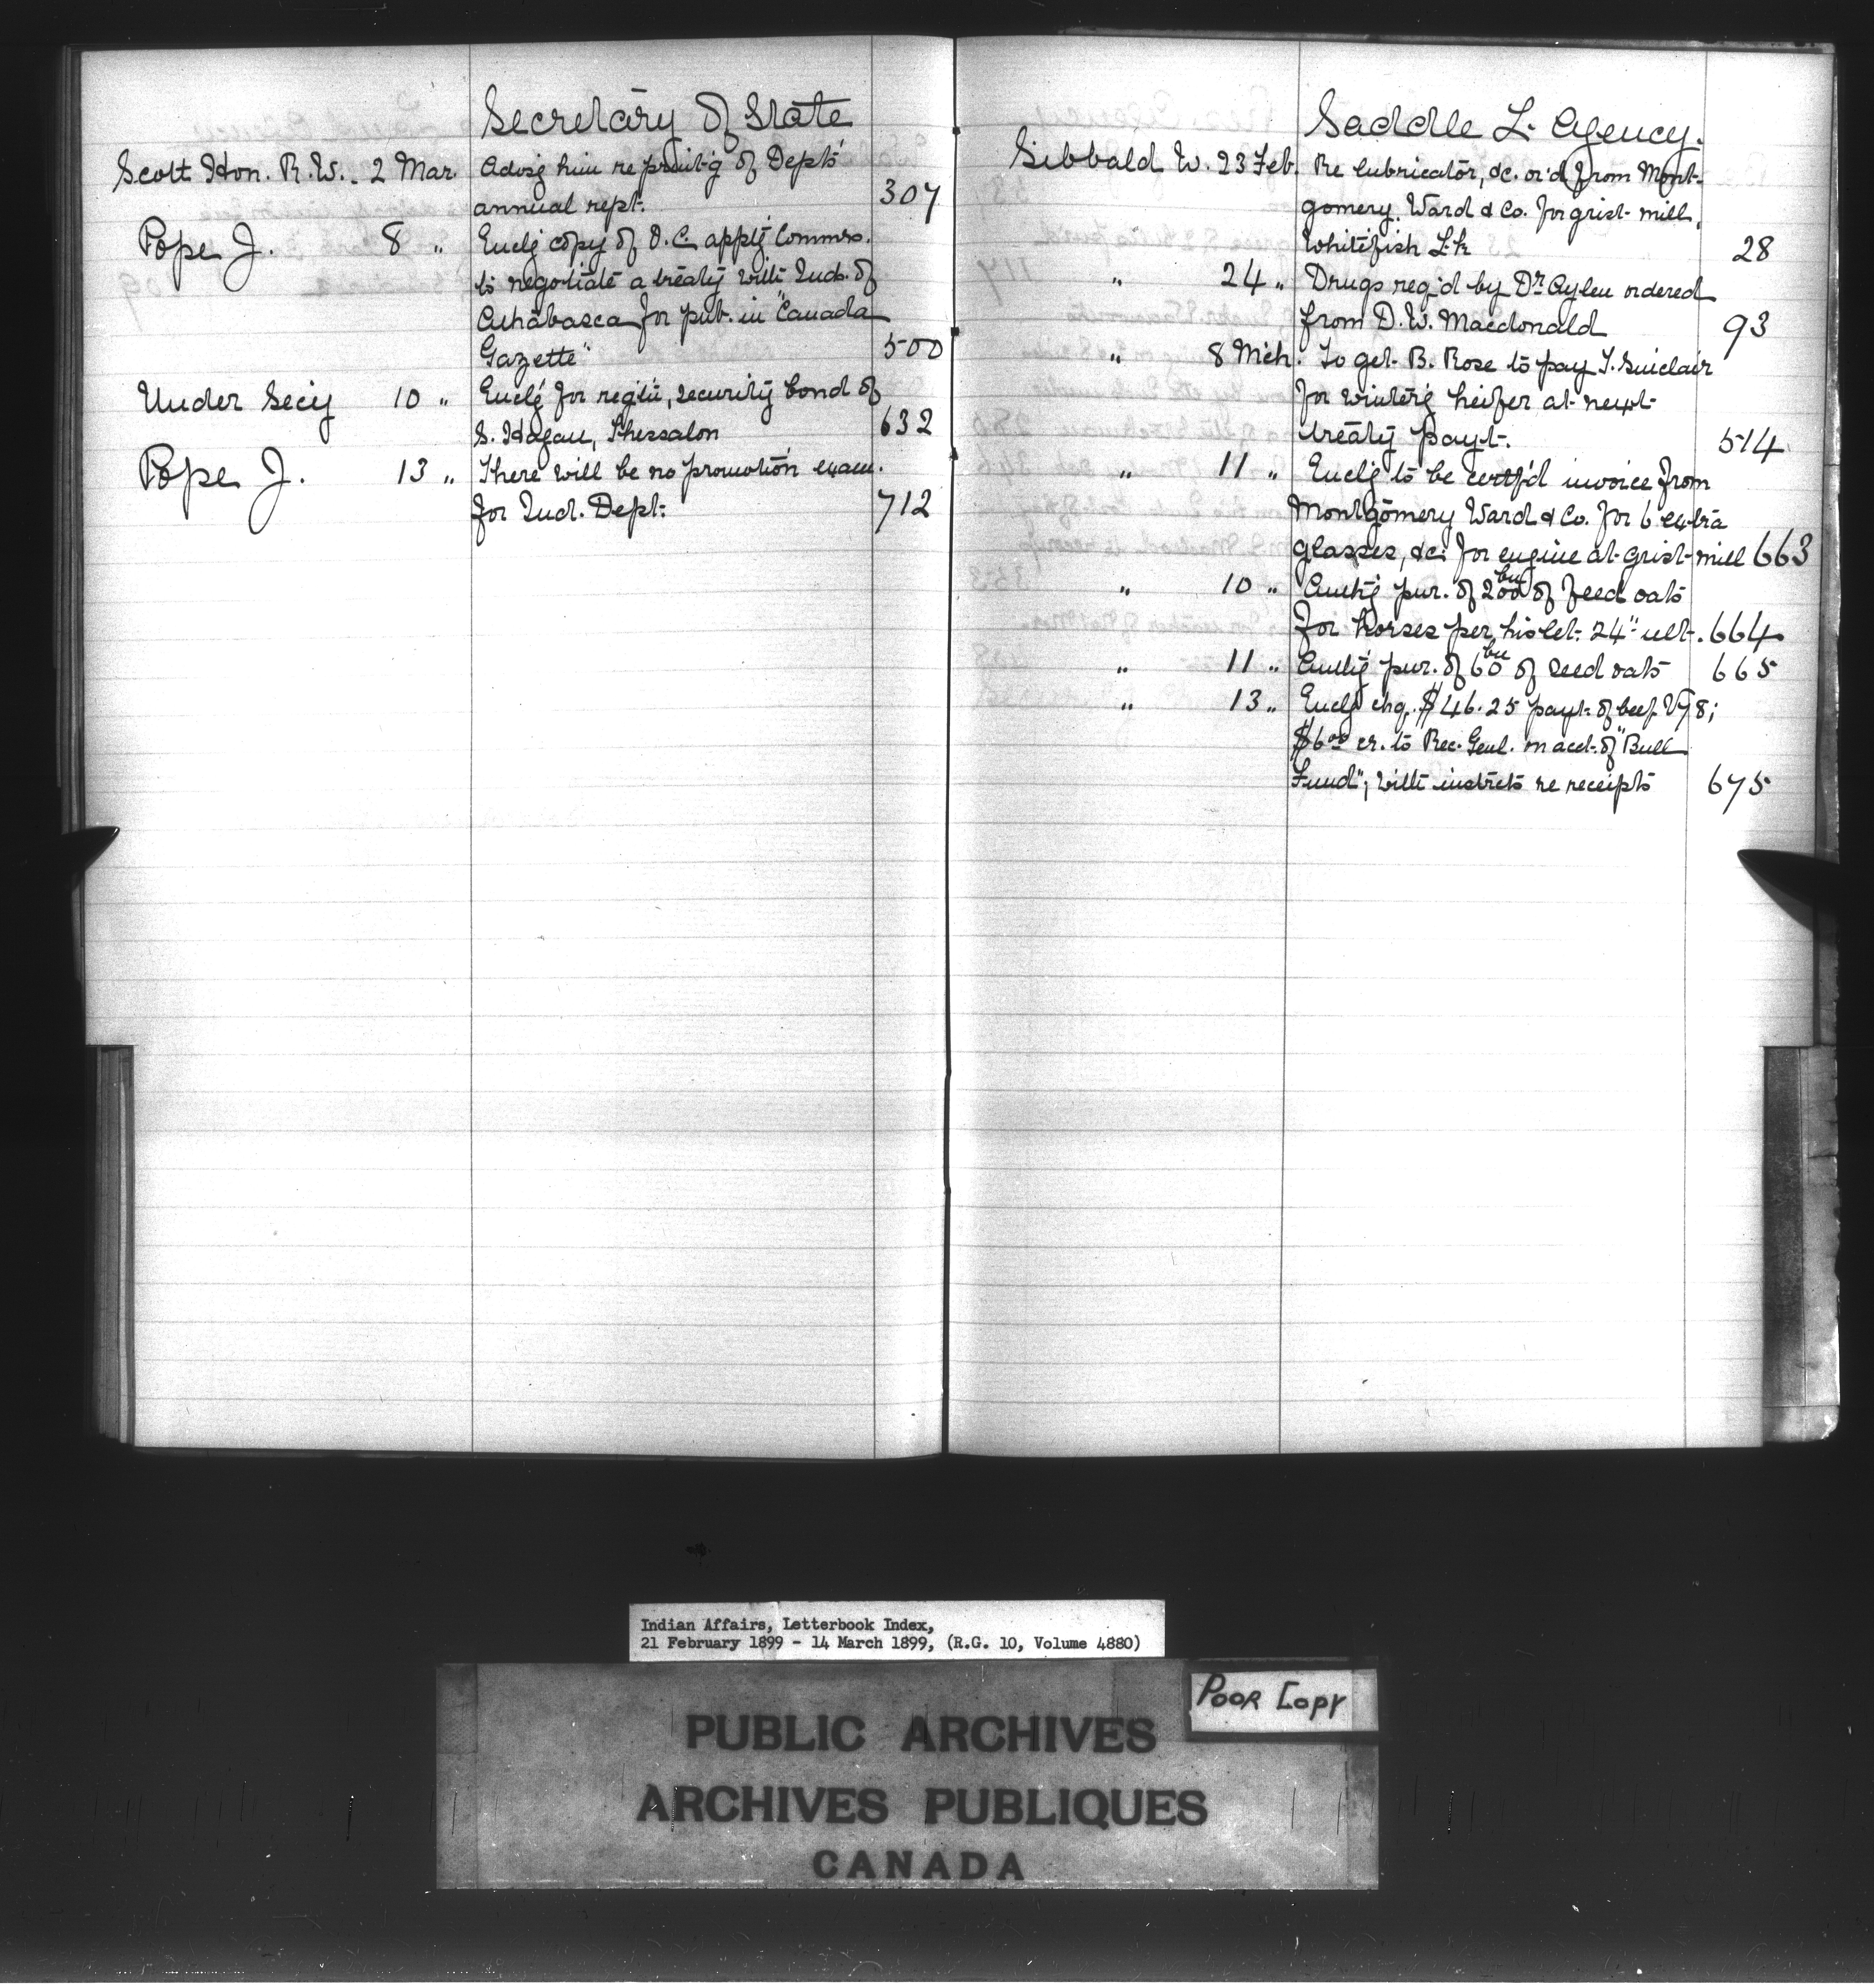 Secretary of State
Scott Hon. R. W. 2 Mar. Advisg him re print'g of Dept's
annual rept. 307
Pope J. 8 " Enclg copy of O.C. apptg Commrs.
to negotiate a treaty with Inds. of
Athabasca for pub. in "Canada
Gazette" 500
Under Secy 10 " Enclg for regtn, security bond of
S. Hagan, Thessalon 632
Pope J. 13 " There will be no promotion exam.
for Ind. Dept. 712
Saddle L. Agency.
Sibbald W. 23 Feb. Re lubricator, &c. or'd from Mont-
gomery, Ward & Co. for grist mill,
Whitefish Lk 28
" 24 " Drugs req'd by Dr Aylen ordered
from D. W. Macdonald 93
" 8 Mch. To get B. Rose to pay J. Sinclair
for winterg heifer at next
treaty payt. 514
" 11 " Enclg to be certf'd invoice from
Montgomery Ward & Co. for 6 extra
glasses, &c. for engine at grist mill 663
" 10 " Authg pur. of 200 bu of feed oats
for horses per his let. 24" ult. 664
" 11 " Authg pur. of 60 bu of seed oats 665
" 13 " Enclg chq. $46.25 payt. of beef
$6.00 cr. to Rec. Genl. on acct. of "Bull
Fund"; with instrcts re receipts 675
Indian Affairs, Letterbook Index,
21 February 1899 - 14 March 1899, (R.G. 10, Volume 4880)
Poor Copy
PUBLIC ARCHIVES
ARCHIVES PUBLIQUES
CANADA